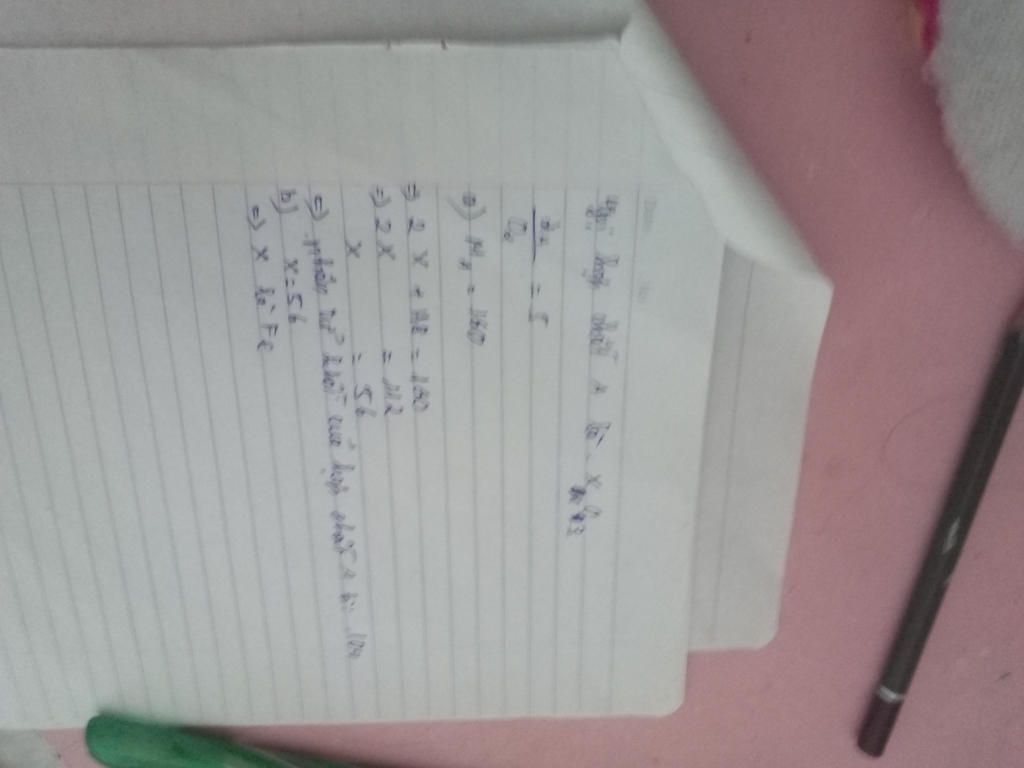 Gọi hợp chất A là X₂O₃
dA/O₂ = 5
a) MA = 160
=> 2X + 48 = 160
=> 2X = 112
X = 56
=> phân tử khối của hợp chất A là 160
b) X = 56
=> X là Fe